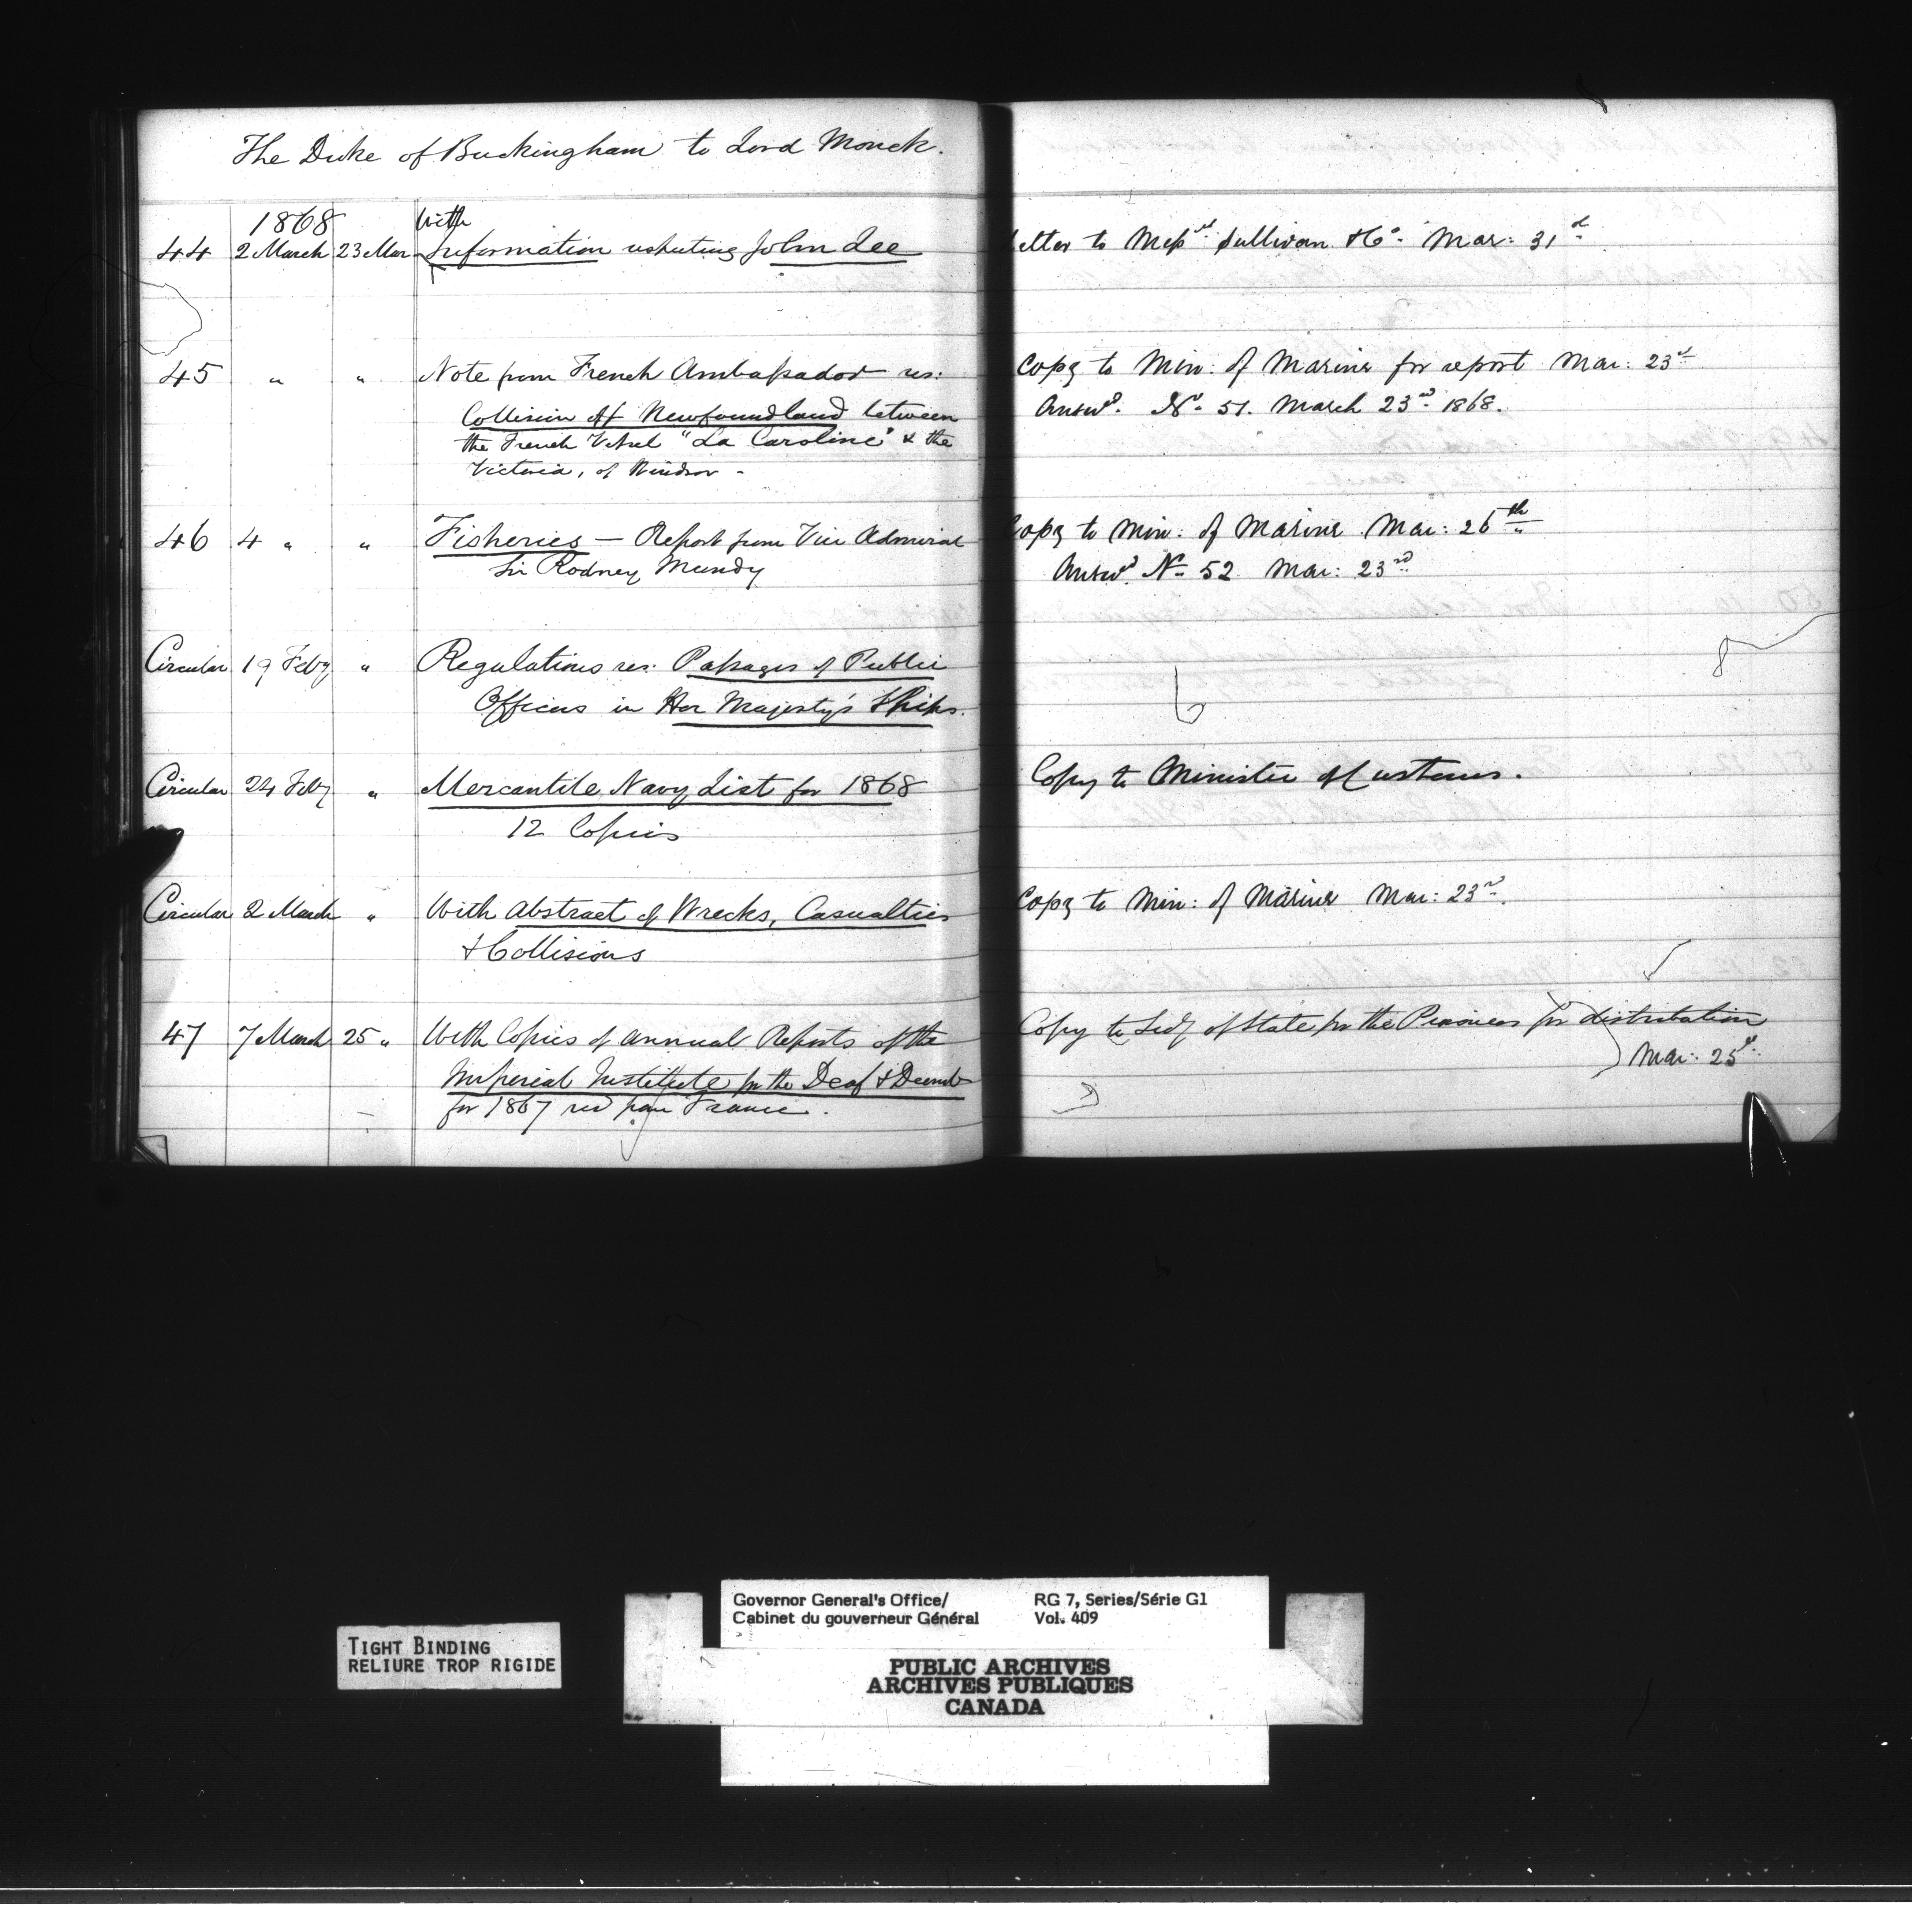 The Duke of Buckingham to Lord Monck.
1868
44 2 March 23 Mar With Information respecting John Lee
Letter to Messrs Sullivan & Co. Mar: 31st
45 " " Note from French Ambassador res:
Collision off Newfoundland between
the French Vessel "La Caroline" & the
Victoria, of Windsor -
Copy to Min: of Marine for report Mar: 23rd
Answd. No. 51. March 23rd 1868.
46 4 " " Fisheries — Report from Vice Admiral
Sir Rodney Mundy
Copy to Min: of Marine Mar: 26th
Answd. No. 52 Mar: 23rd
Circular 19 Feby " Regulations res: Passages of Public
Officers in Her Majesty's Ships.
Circular 24 Feby " Mercantile Navy List for 1868
12 Copies
Copy to Minister of Customs.
Circular 2 March " With Abstract of Wrecks, Casualties
& Collisions
Copy to Min: of Marine Mar: 23rd.
47 7 March 25 " With Copies of Annual Reports of the
Imperial Institute for the Deaf & Dumb
for 1867 recd from France.
Copy to Secy of State for the Provinces for distribution
Mar: 25th
TIGHT BINDING
RELIURE TROP RIGIDE
Governor General's Office/ RG 7, Series/Série G1
Cabinet du gouverneur Général Vol. 409
PUBLIC ARCHIVES
ARCHIVES PUBLIQUES
CANADA